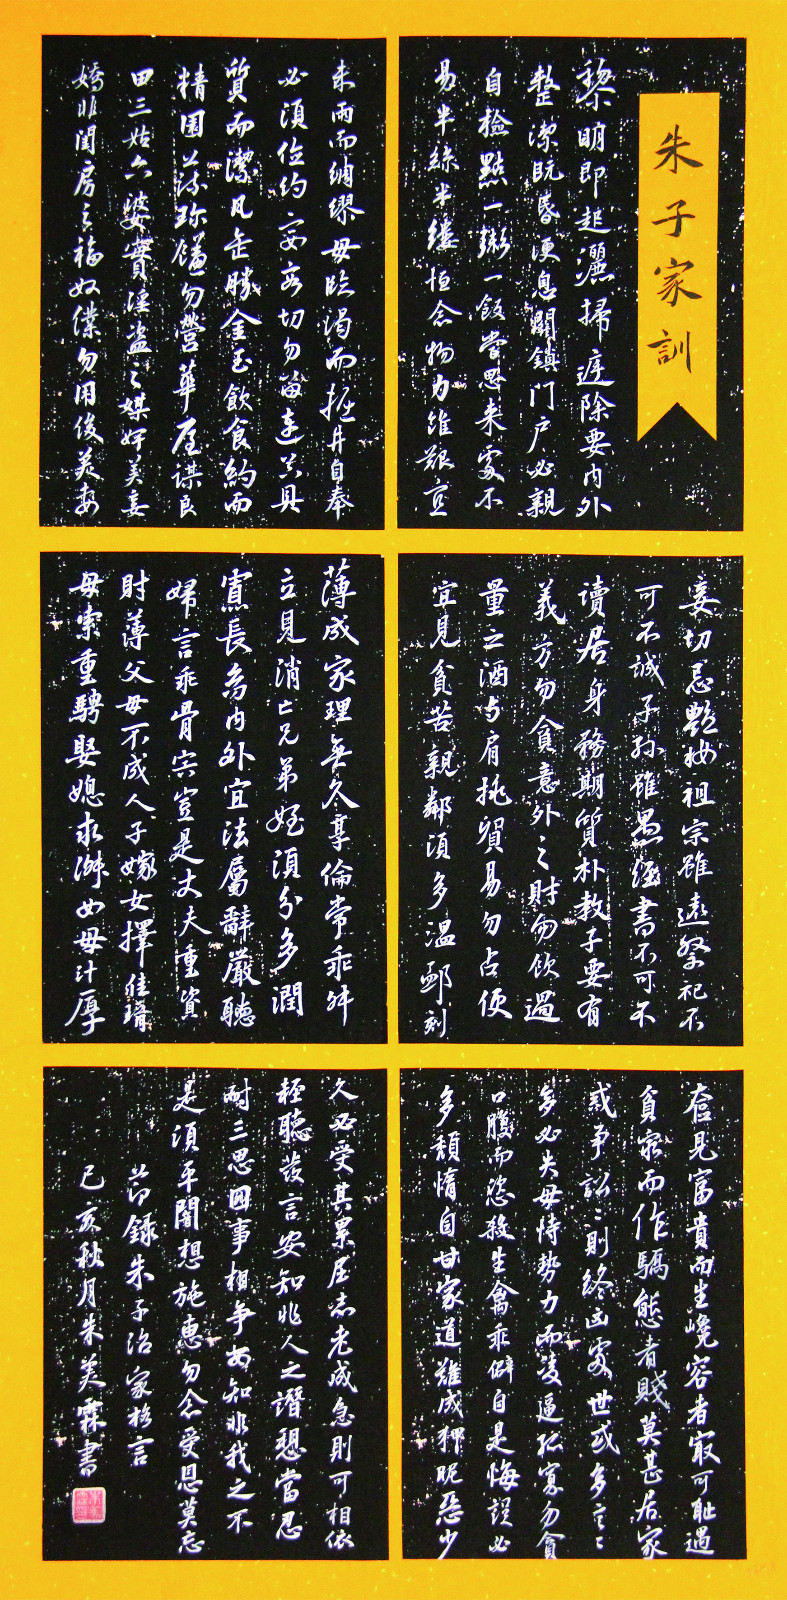 朱子家訓
黎明即起灑掃庭除要内外
整潔既昏便息關鎖門户必親
自檢點一粥一飯當思来處不
易半絲半縷恒念物力維艱宜
未雨而綢繆毋臨渴而掘井自奉
必須儉約宴客切勿留連器具
質而潔瓦缶勝金玉飲食約而
精園蔬珍饈勿營華屋謀良
田三姑六婆實淫盗之媒婢美妾
嬌非閨房之福奴僕勿用俊美妻
妾切忌艷妝祖宗雖遠祭祀不
可不誠子孫雖愚經書不可不
讀居身務期質朴教子要有
義方勿貪意外之財勿飲過
量之酒与肩挑貿易勿占便
宜見貧苦親鄰須多温卹刻
薄成家理無久享倫常乖舛
立見消亡兄弟姪須分多潤
寡長幼内外宜法屬辭嚴聽
婦言乖骨肉豈是丈夫重資
財薄父母不成人子嫁女擇佳壻
毋索重聘娶媳求淑女毋計厚
奩見富貴而生讒容者最可耻遇
貧窮而作驕態者賤莫甚居家
戒争訟訟則終凶處世戒多言言
多必失毋恃勢力而凌逼孤寡勿貪
口腹而恣殺生禽乖僻自是悔誤必
多頽惰自甘家道難成狎昵惡少
久必受其累屈志老成急則可相依
輕聽發言安知非人之譖愬當忍
耐三思因事相争安知非我之不
是須平闇想施惠勿念受恩莫忘
節録朱子治家格言
己亥秋月朱美霖書